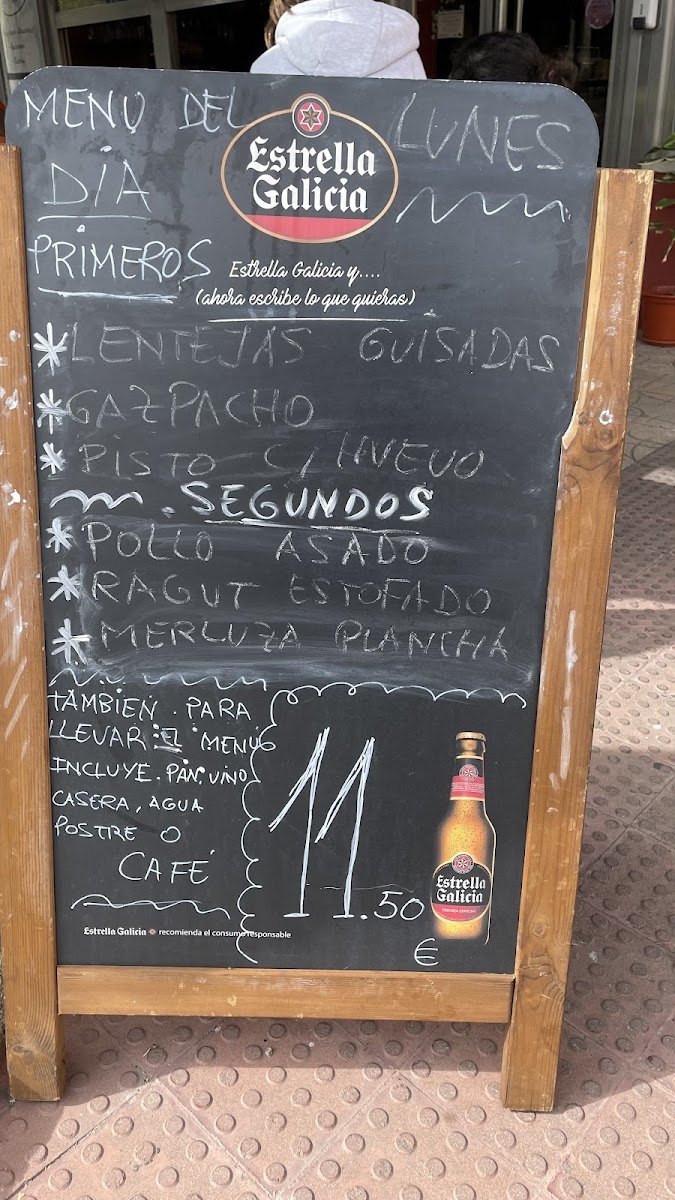 MENU DEL
DIA
LUNES
Estrella
Galicia
PRIMEROS
Estrella Galicia y....
(ahora escribe lo que quieras)
* LENTEJAS GUISADAS
* GAZPACHO
* PISTO C/ HUEVO
SEGUNDOS
* POLLO ASADO
* RAGUT ESTOFADO
* MERLUZA PLANCHA
TAMBIEN. PARA
LLEVAR EL MENÚ
INCLUYE. PAN, VINO
CASERA, AGUA
POSTRE O
CAFÉ
11.50
€
Estrella
Galicia
Estrella Galicia recomienda el consumo responsable